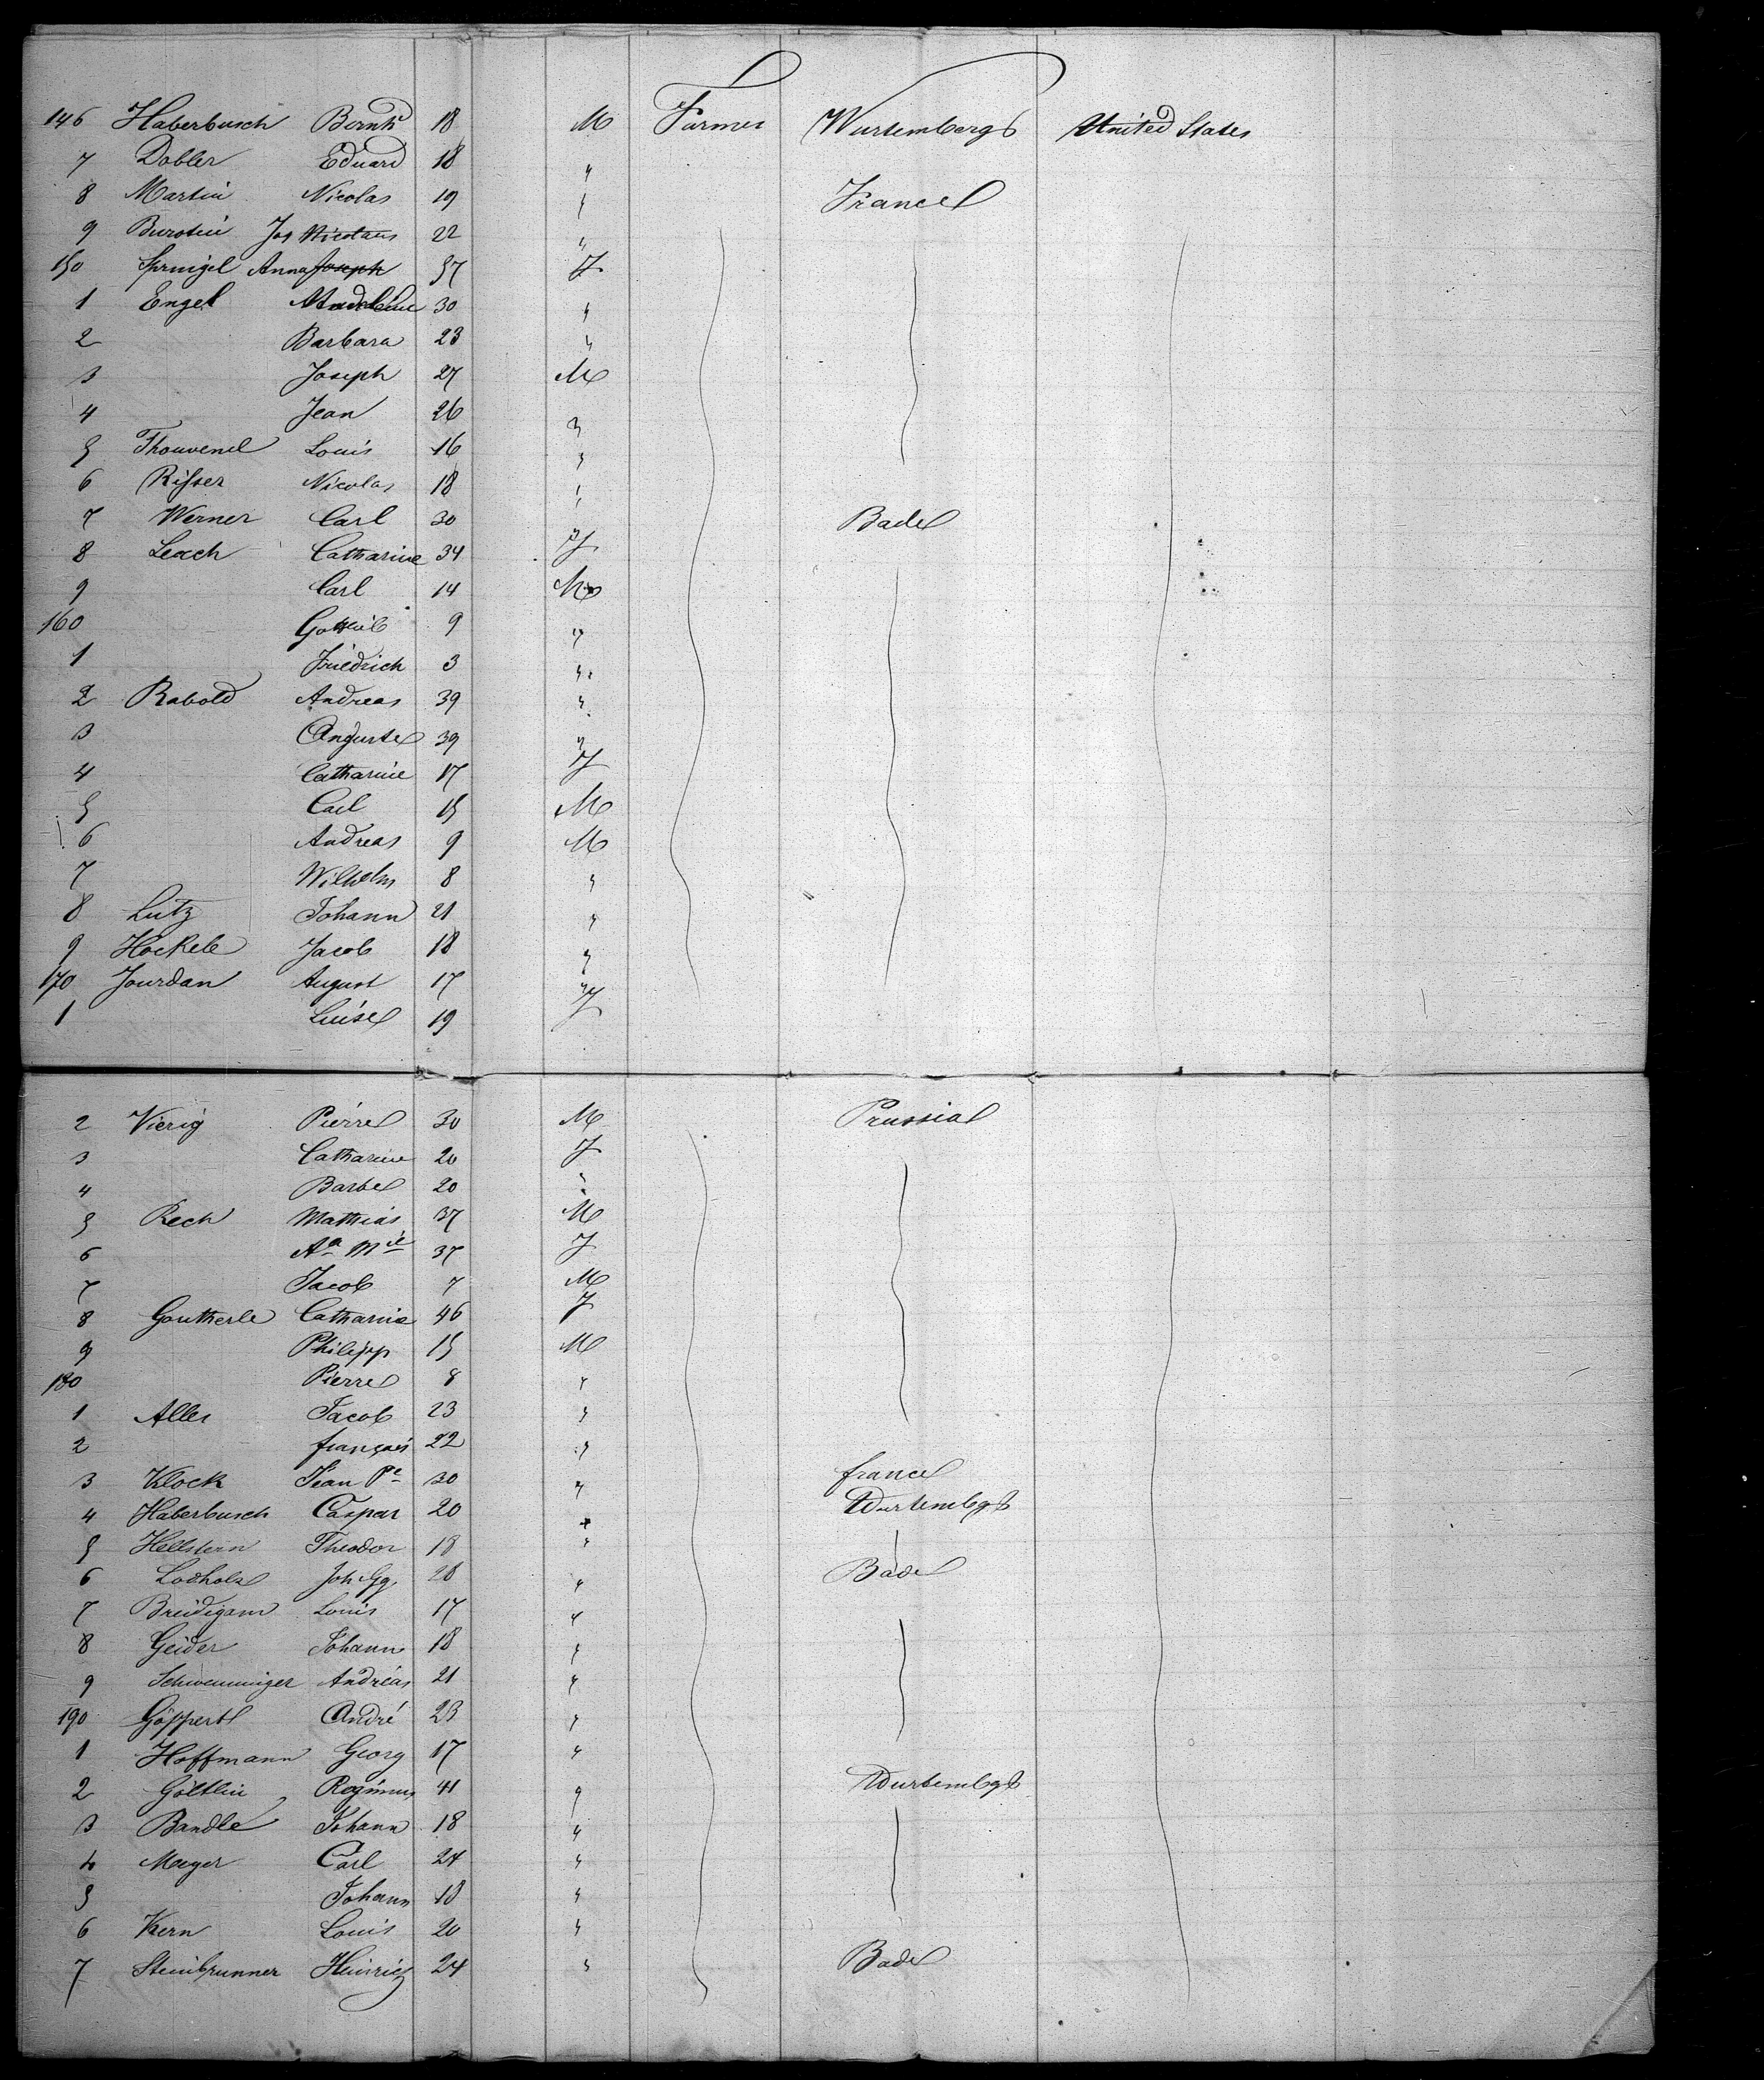 146 Haberbusch Bernh^d 18 M Farmer Wurtemberg United States
7 Dobler Eduard 18 "
8 Martin Nicolas 19 " France
9 Burotin Jos Nicolaus 22 "
150 Springel Anna Joseph 57 F
1 Engel Madeleine 30 "
2 Barbara 23 "
3 Joseph 27 M
4 Jean 26 "
5 Thouvenel Louis 16 "
6 Risser Nicolas 18 "
7 Werner Carl 30 " Bade
8 Leach Catharine 34 F
9 Carl 14 M
160 Gottleib 9 "
1 Friedrich 3 "
2 Rabold Andreas 39 "
3 Auguste 39 "
4 Catharine 17 F
5 Carl 15 M
6 Andreas 9 M
7 Wilhelm 8 "
8 Lutz Johann 21 "
9 Hockele Jacob 18 "
170 Jourdan August 17 "
1 Luise 19 F
2 Vierig Pierre 30 M Prussia
3 Catharine 20 F
4 Barbe 20 "
5 Rech Mathias 37 M
6 A^a M^ie 37 F
7 Jacob 7 M
8 Goutherle Catharine 46 F
9 Philipp 15 M
180 Pierre 8 "
1 Aller Jacob 23 "
2 français 22 "
3 Klock Jean P^e 30 " france
4 Haberbusch Caspar 20 " Wurtembg
5 Hellstern Theodor 18 "
6 Locholz Joh Gg. 28 " Bade
7 Breidigam Louis 17 "
8 Geider Johann 18 "
9 Schwenninger Andréas 21 "
190 Göppert André 23 "
1 Hoffmann Georg 17 "
2 Göltlin Regimus 41 " Wurtembg
3 Bandle Johann 18 "
4 Meyer Carl 24 "
5 Johann 18 "
6 Kern Louis 20 "
7 Steinbrunner Heinrich 24 " Bade